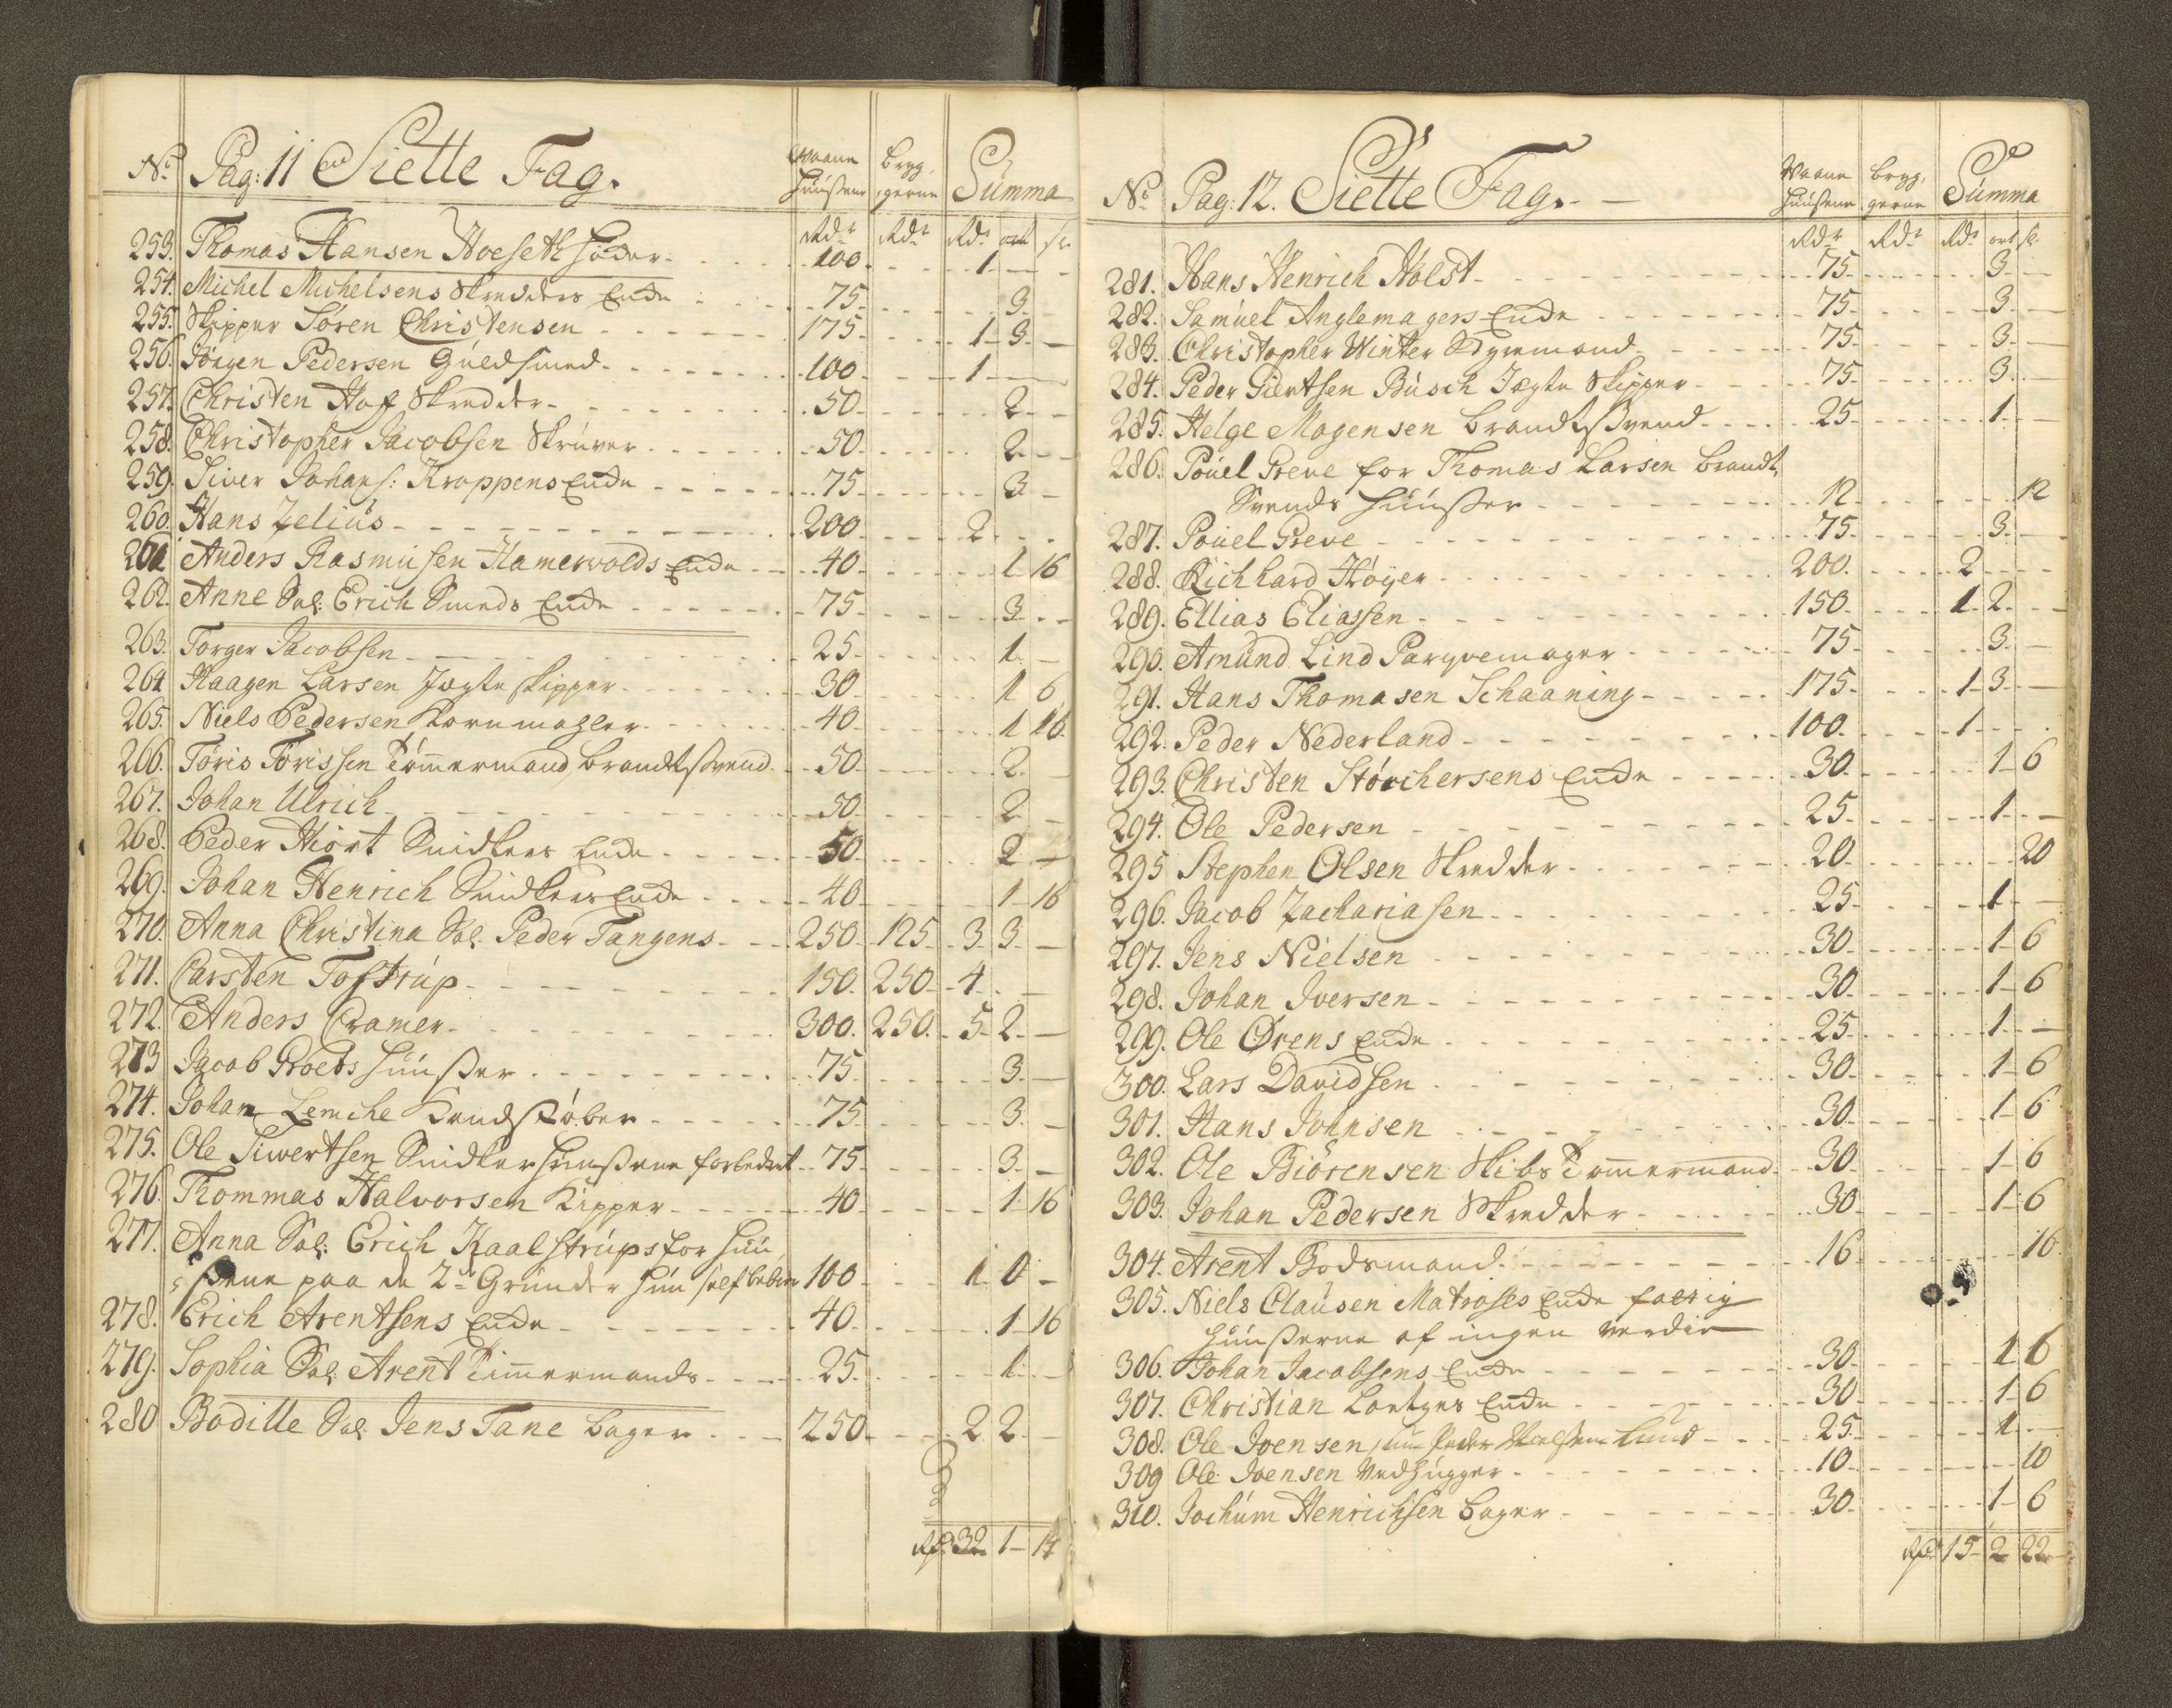 No Pag: 11 Siette Fag. Waane Huusene Bryg, gerne Summa
Rdr Rdr Rdr ort sk
253. Thomas Hansen Hoeseth 100 1
254. Michel Michelsens Skredders Enke 75 3
255. Skipper Søren Christensen 175 1 3
256. Jørgen Pedersen Guldsmed 100 1
257. Christen Hoff Skredder 50 2
258. Christopher Jacobsen Skriver 50 2
259. Siver Johans: Kroppens Enke 75 3
260. Hans Zelius 200 2
261 Anders Rasmusen Hamervolds Enke 40 1 16
262. Anne Sal: Erich Smeds Enke 75 3
263. Torger Jacobsen 25 1
264 Haagen Larsen Jægte skipper 30 1 6
265. Niels Pedersen Kornmagler 40 1 16
266. Tøris Tørissen Tømmermand, brandtsvend 50 2
267. Johan Ulrich 50 2
268. Peder Hiort Snidkers Enke 50 2
269. Johan Henrich Snidkers Enke 40 1 16
270. Anna Christina Sal. Peder Tangens 250 125 3 3
271. Carsten Toftrup 150 250 4
272. Anders Cramer 300 250 5 2
273 Jacob Proets Huusser 75 3
274. Johan Lemche Kandstøber 75 3
275. Ole Siwertsen Snidker Huussene forbedret 75 3
276. Thommas Halvorsen Kipper 40 1 16
277. Anna Sal: Erich Kaalstrups for Huu,
ssene paa de 2de Grunder hun self beboer 100 1 0
278. Erich Arentsens Enke 40 1 16
279. Sophia Sal: Arent Timmermands 25 1
280 Bodille Sal: Jens Tane bager 250 2 2
Rdr 32 1 14
No Pag: 12. Siette Fag. Waane Huusene bryg, gerne Summa
Rdr Rdr Rdr ort sk
281. Hans Henrich Holst 75 3
282. Samuel Anglemagers Enke 75 3
283. Christopher Winter Styremand 75 3
284. Peder Giertsen Busch Jægte Skipper 75 3
285. Helge Mogensen brandtsvend 25 1
286. Pouel Greve for Thomas Larsen brandt,
Svends Huusser 12 12
287. Pouel Greve 75 3
288. Richhard Høyer 200 2
289. Ellias Eliassen 150 1 2
290. Amund Lind Paryvemager 75 3
291. Hans Thomasen Schaaning 175 1 3
292. Peder Nederland 100 1
293. Christen Størchersens Enke 30 1 6
294. Ole Pedersen 25 1
295 Stephen Olsen Skredder 20 20
296. Jacob Zachariasen 25 1
297. Jens Nielsen 30 1 6
298. Johan Iversen 30 1 6
299. Ole Ørens Enke 25 1
300. Lars Davidsen 30 1 6
301. Hans Johnsen 30 1 6
302. Ole Biørensen Skibs Tømmermand 30 1 6
303. Johan Pedersen Skredder 30 1 6
304. Arent Bodsmand 16 16
305. Niels Clausen Matroses Enke fattig
Huusserne af ingen verdie
306. Johan Jacobsens Enke 30 1 6
307. Christian Loetges Enke 30 1 6
308. Ole Joensen, nu Peder Nielsen Lund 25 1
309 Ole Joensen Vedhugger 10 10
310. Jochum Henrichsen bager 30 1 6
Rdr 15 2 22